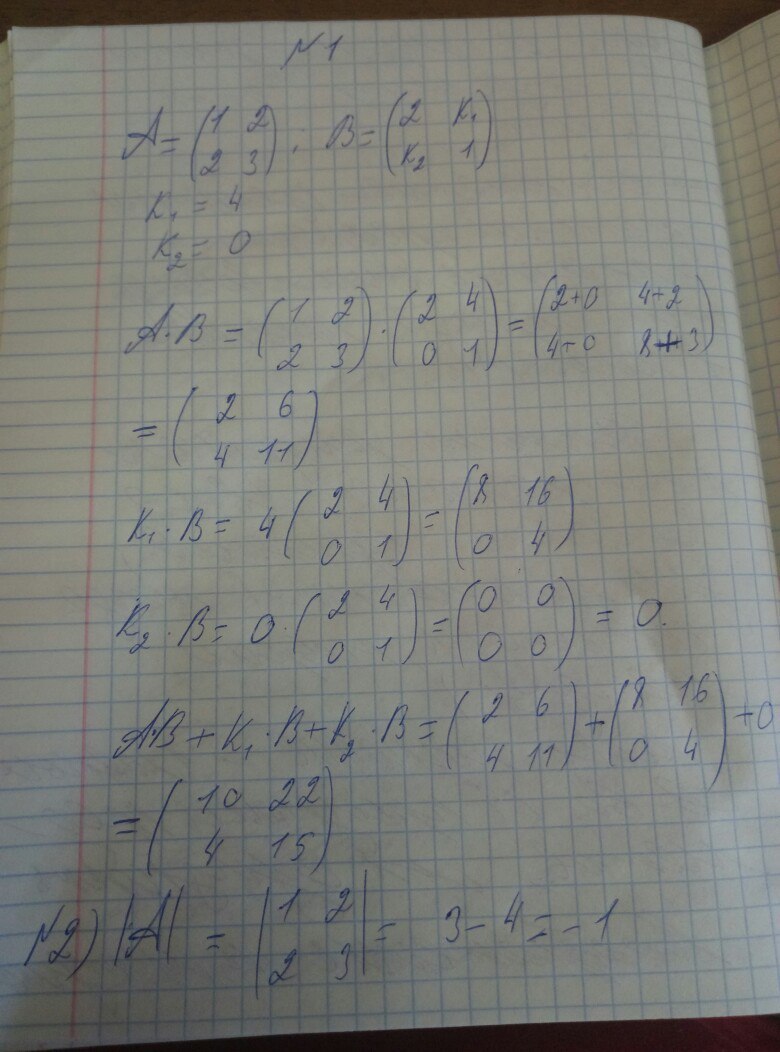 №1
A = (1 2; 2 3); B = (2 K₁; K₂ 1)
K₁ = 4
K₂ = 0
A·B = (1 2; 2 3)·(2 4; 0 1) = (2+0 4+2; 4+0 8+3)
= (2 6; 4 11)
K₁·B = 4(2 4; 0 1) = (8 16; 0 4)
K₂·B = 0·(2 4; 0 1) = (0 0; 0 0) = 0.
AB + K₁·B + K₂·B = (2 6; 4 11) + (8 16; 0 4) + 0
= (10 22; 4 15)
№2) |A| = |1 2; 2 3| = 3 - 4 = -1